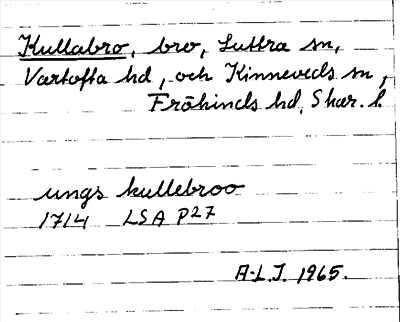 Kullabro, bro, Luttra sn,
Vartofta hd, och Kinneveds sn,
Frökinds hd, Skar. l.
ungs kullebroo
1714 LSA P27
A.L.J. 1965.